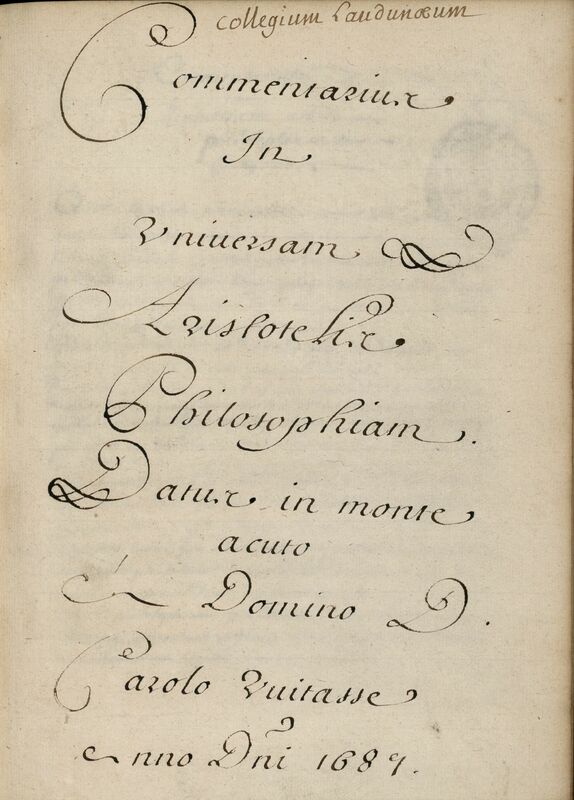 Collegium Laudunæum
Commentarius
In
Vniuersam
Aristotelis
Philosophiam.
Datus in monte
acuto
A Domino D.
Carolo Vuitasse
Anno Dñi 1689.